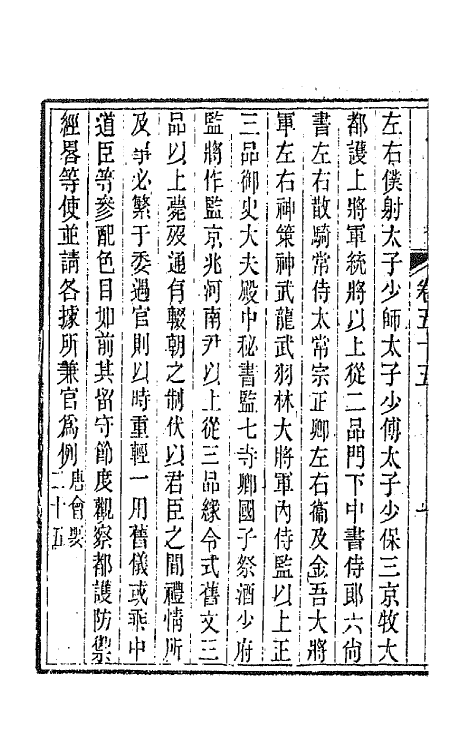 卷五十五
左右僕射太子少師太子少傅太子少保三京牧大
都護上將軍統將以上從二品門下中書侍郎六尚
書左右散騎常侍太常宗正卿左右衞及金吾大將
軍左右神策神武龍武羽林大將軍內侍監以上正
三品御史大夫殿中秘書監七寺卿國子祭酒少府
監將作監京兆河南尹以上從三品緣令式舊文三
品以上薨歿通有輟朝之制伏以君臣之間禮情所
及事必繁于委遇官則以時重輕一用舊儀或乖中
道臣等參配色目如前其留守節度觀察都護防禦
經畧等使並請各據所兼官爲例唐會要二十五